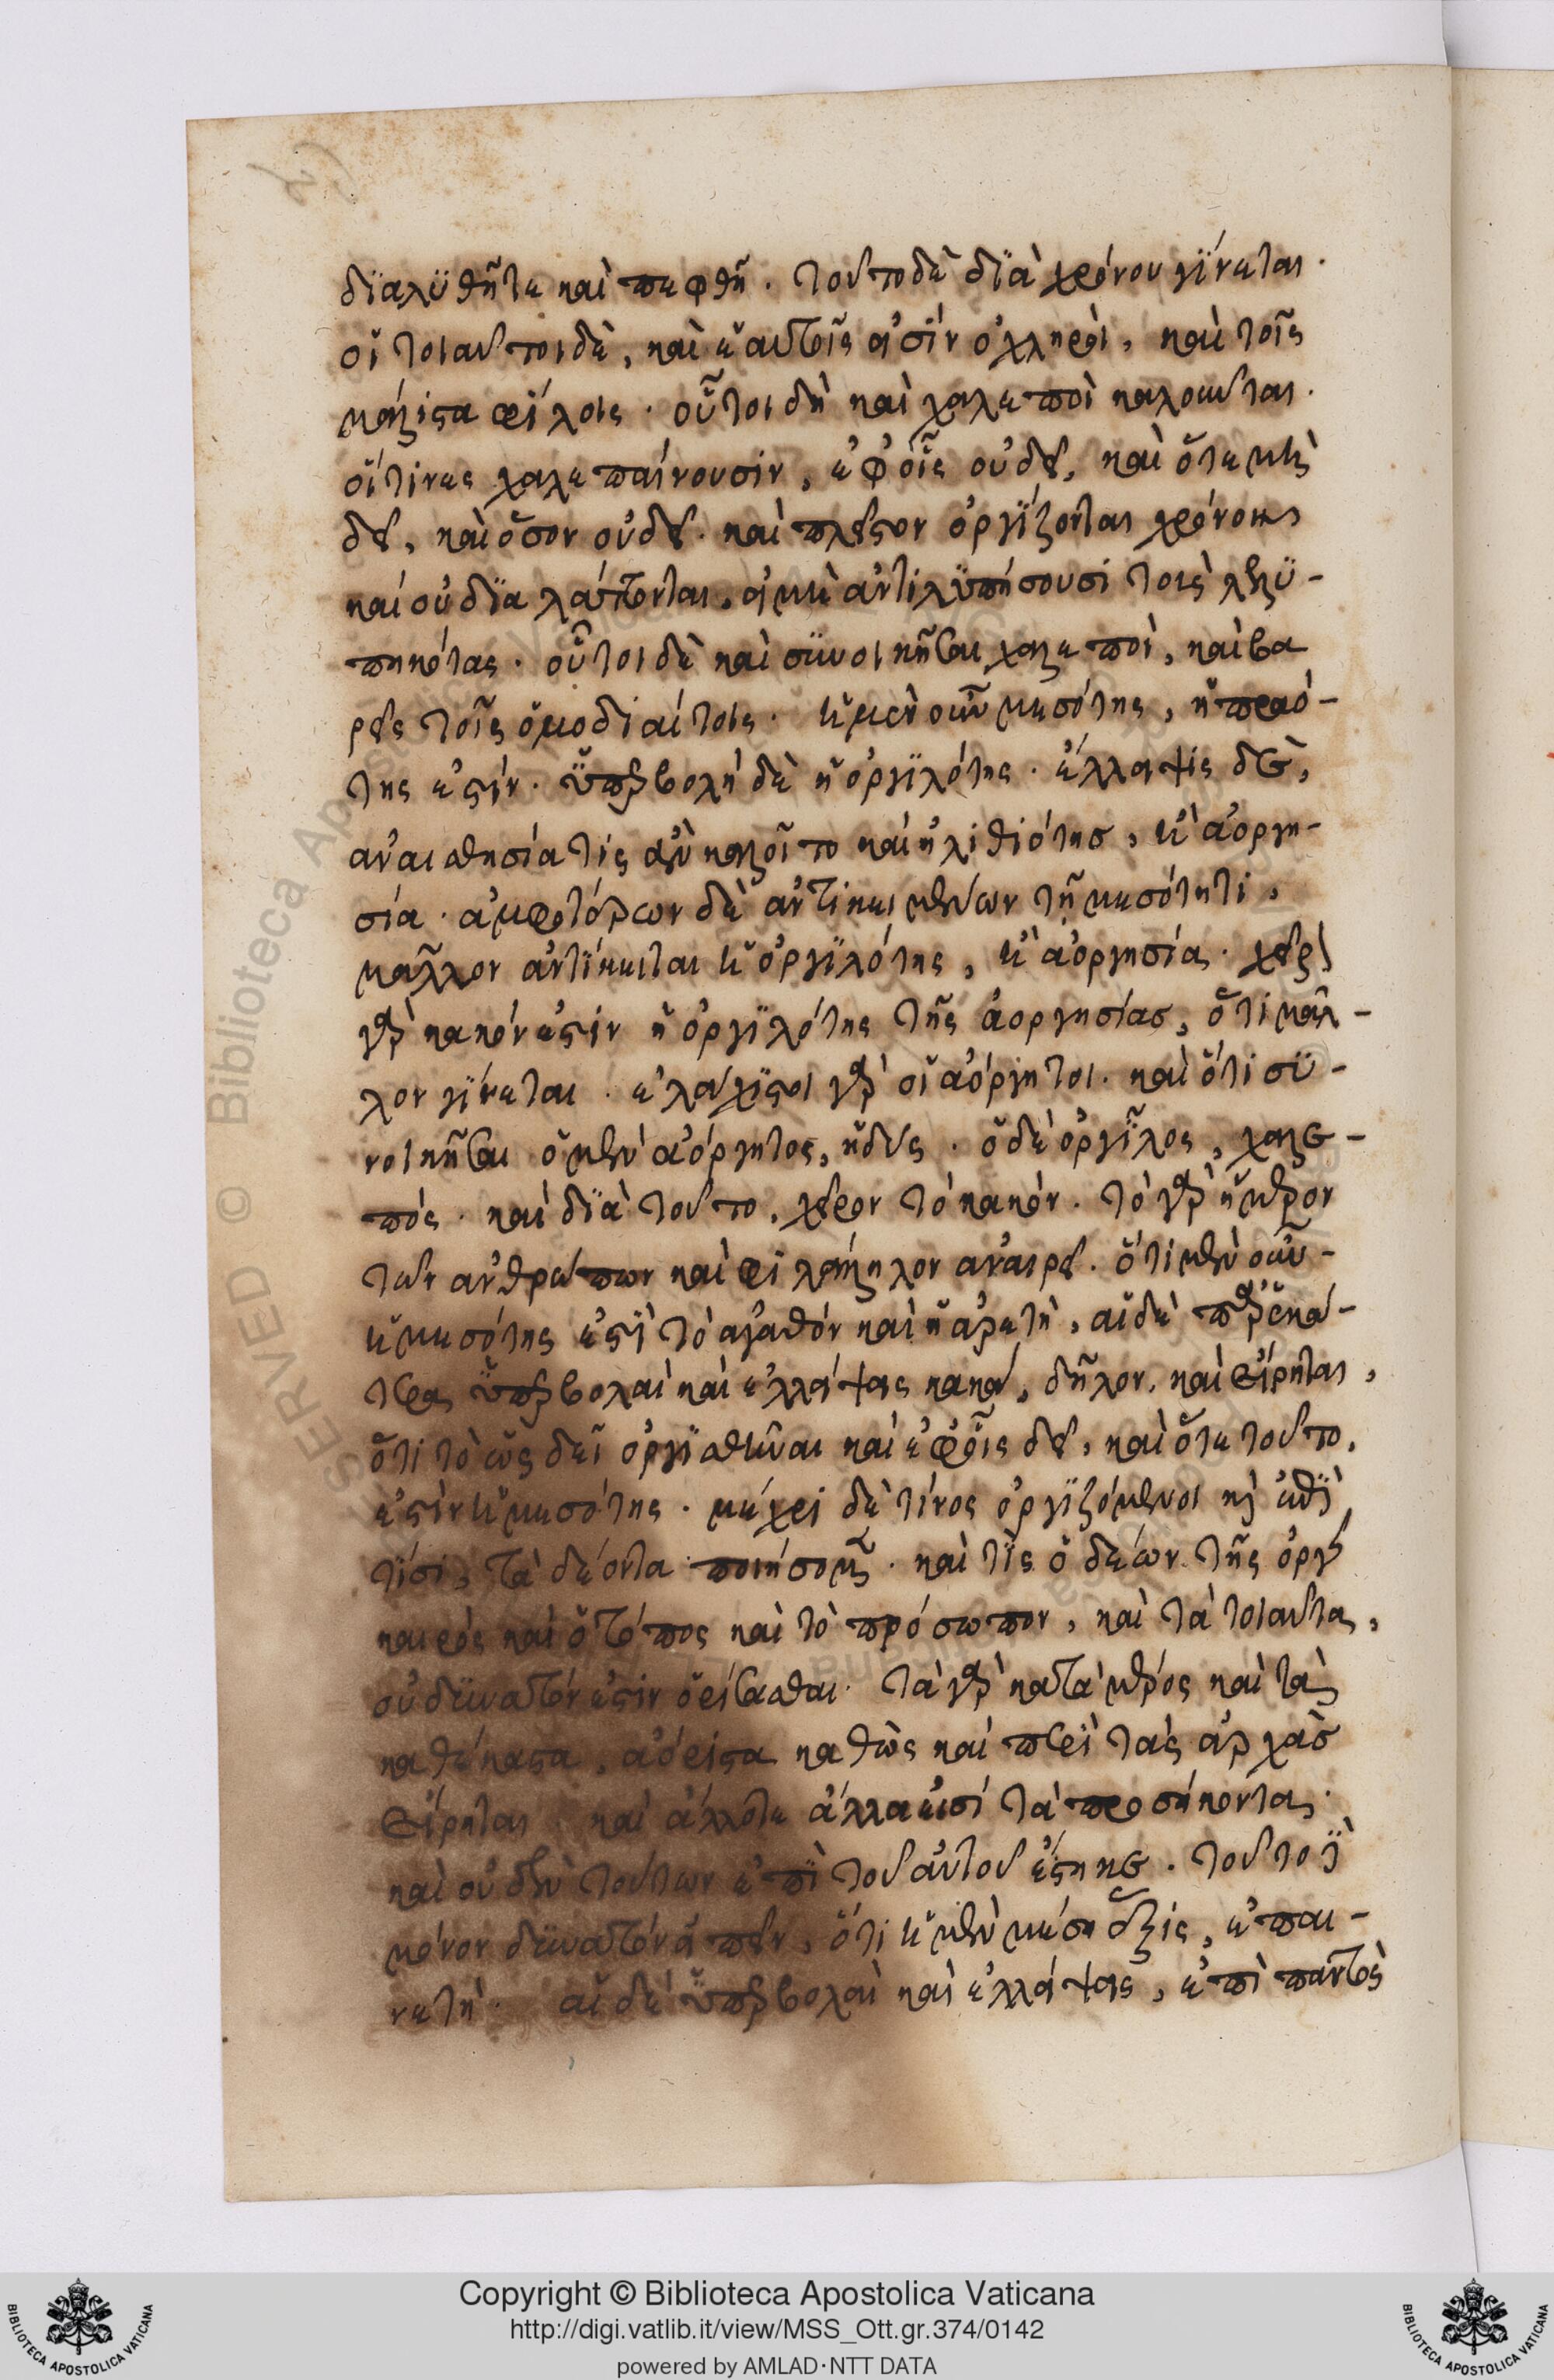 διαλυθῆτε καὶ πεφθῆ. τοῦτο δὲ διὰ χρόνου γίνεται.
οἱ τοιοῦτοι δὲ, καὶ ἑαυτοῖς εἰσὶν ὀχληροὶ, καὶ τοῖς
μάλιστα φίλοις. οὗτοι δὴ καὶ χαλεποὶ καλοῦνται.
οἵτινες χαλεπαίνουσιν, ἐφ' οἷς οὐ δεῖ, καὶ ὅτε μὴ
δεῖ, καὶ ὅσον οὐ δεῖ. καὶ πλεῖστον ὀργίζονται χρόνον
καί οὐ διαλλάττονται, εἰ μὴ ἀντιλυπήσουσι τοὺς λελυ-
πηκότας. οὗτοι δὲ καὶ συνοικῆσαι χαλεποὶ, καὶ βα
ρεῖς τοῖς ὁμοδιαίτοις. ἡ μὲν οὖν μεσότης, ἡ πραό-
της ἐστίν. ὑπερβολὴ δὲ ἡ ὀργιλότης. ἔλλειψις δὲ,
ἀναισθησία τὶς ἂν καλοῖτο καὶ ἠλιθιότης, ἢ ἀοργη-
σία. ἀμφοτέρων δὲ ἀντικειμένων τῇ μεσότητι,
μᾶλλον ἀντίκειται ἡ ὀργιλότης, ἢ ἀοργησία. χεῖρον
γὰρ κακόν ἐστιν ἡ ὀργιλότης τῆς ἀοργησίας, ὅτι μᾶλ-
λον γίνεται. ἐλάχιστοι γὰρ οἱ ἀόργητοι. καὶ ὅτι συ-
νοικῆσαι ὁ μὲν ἀόργητος, ἡδύς. ὁ δὲ ὀργίλος, χαλε-
πός. καὶ διὰ τοῦτο, χεῖρον τὸ κακόν. τὸ γὰρ ἥμερον
τῶν ἀνθρώπων καὶ φιλάλληλον ἀναιρεῖ. ὅτι μὲν οὖν
ἡ μεσότης ἐστὶ τὸ ἀγαθόν καὶ ἡ ἀρετὴ, αἱ δὲ παρ' ἑκά-
τερα ὑπερβολαὶ καὶ ἐλλείψεις κακά, δῆλον. καὶ εἴρηται,
ὅτι τὸ ὡς δεῖ ὀργισθῆναι καὶ ἐφ' οἷς δεῖ, καὶ ὅτε τοῦτο,
ἐστὶν ἡ μεσότης. μέχρι δὲ τίνος ὀργιζόμενοι καὶ ἐπὶ
τίσι, τὰ δέοντα ποιήσομεν. καὶ τίς ὁ δέων τῆς ὀργῆς
καιρὸς καὶ ὁ τόπος καὶ τὸ πρόσωπον, καὶ τὰ τοιαῦτα,
οὐ δυνατόν ἐστιν ὁρίσασθαι. τὰ γὰρ κατὰ μέρος καὶ τὰ
καθέκαστα, ἀόριστα καθὼς καὶ περὶ τὰς ἀρχὰς
εἴρηται καὶ ἄλλοτε ἄλλα εἰσὶ τὰ προσήκοντα.
καὶ οὐδὲν τούτων ἐπὶ τοῦ αὐτοῦ ἕστηκε. τοῦτο δὲ
μόνον δυνατόν εἰπεῖν, ὅτι ἡ μὲν μέση ἕξις, ἐπαι-
νετὴ. αἱ δὲ ὑπερβολαὶ καὶ ἐλλείψεις, ἐπὶ παντὸς
Copyright © Biblioteca Apostolica Vaticana
http://digi.vatlib.it/view/MSS_Ott.gr.374/0142
powered by AMLAD·NTT DATA